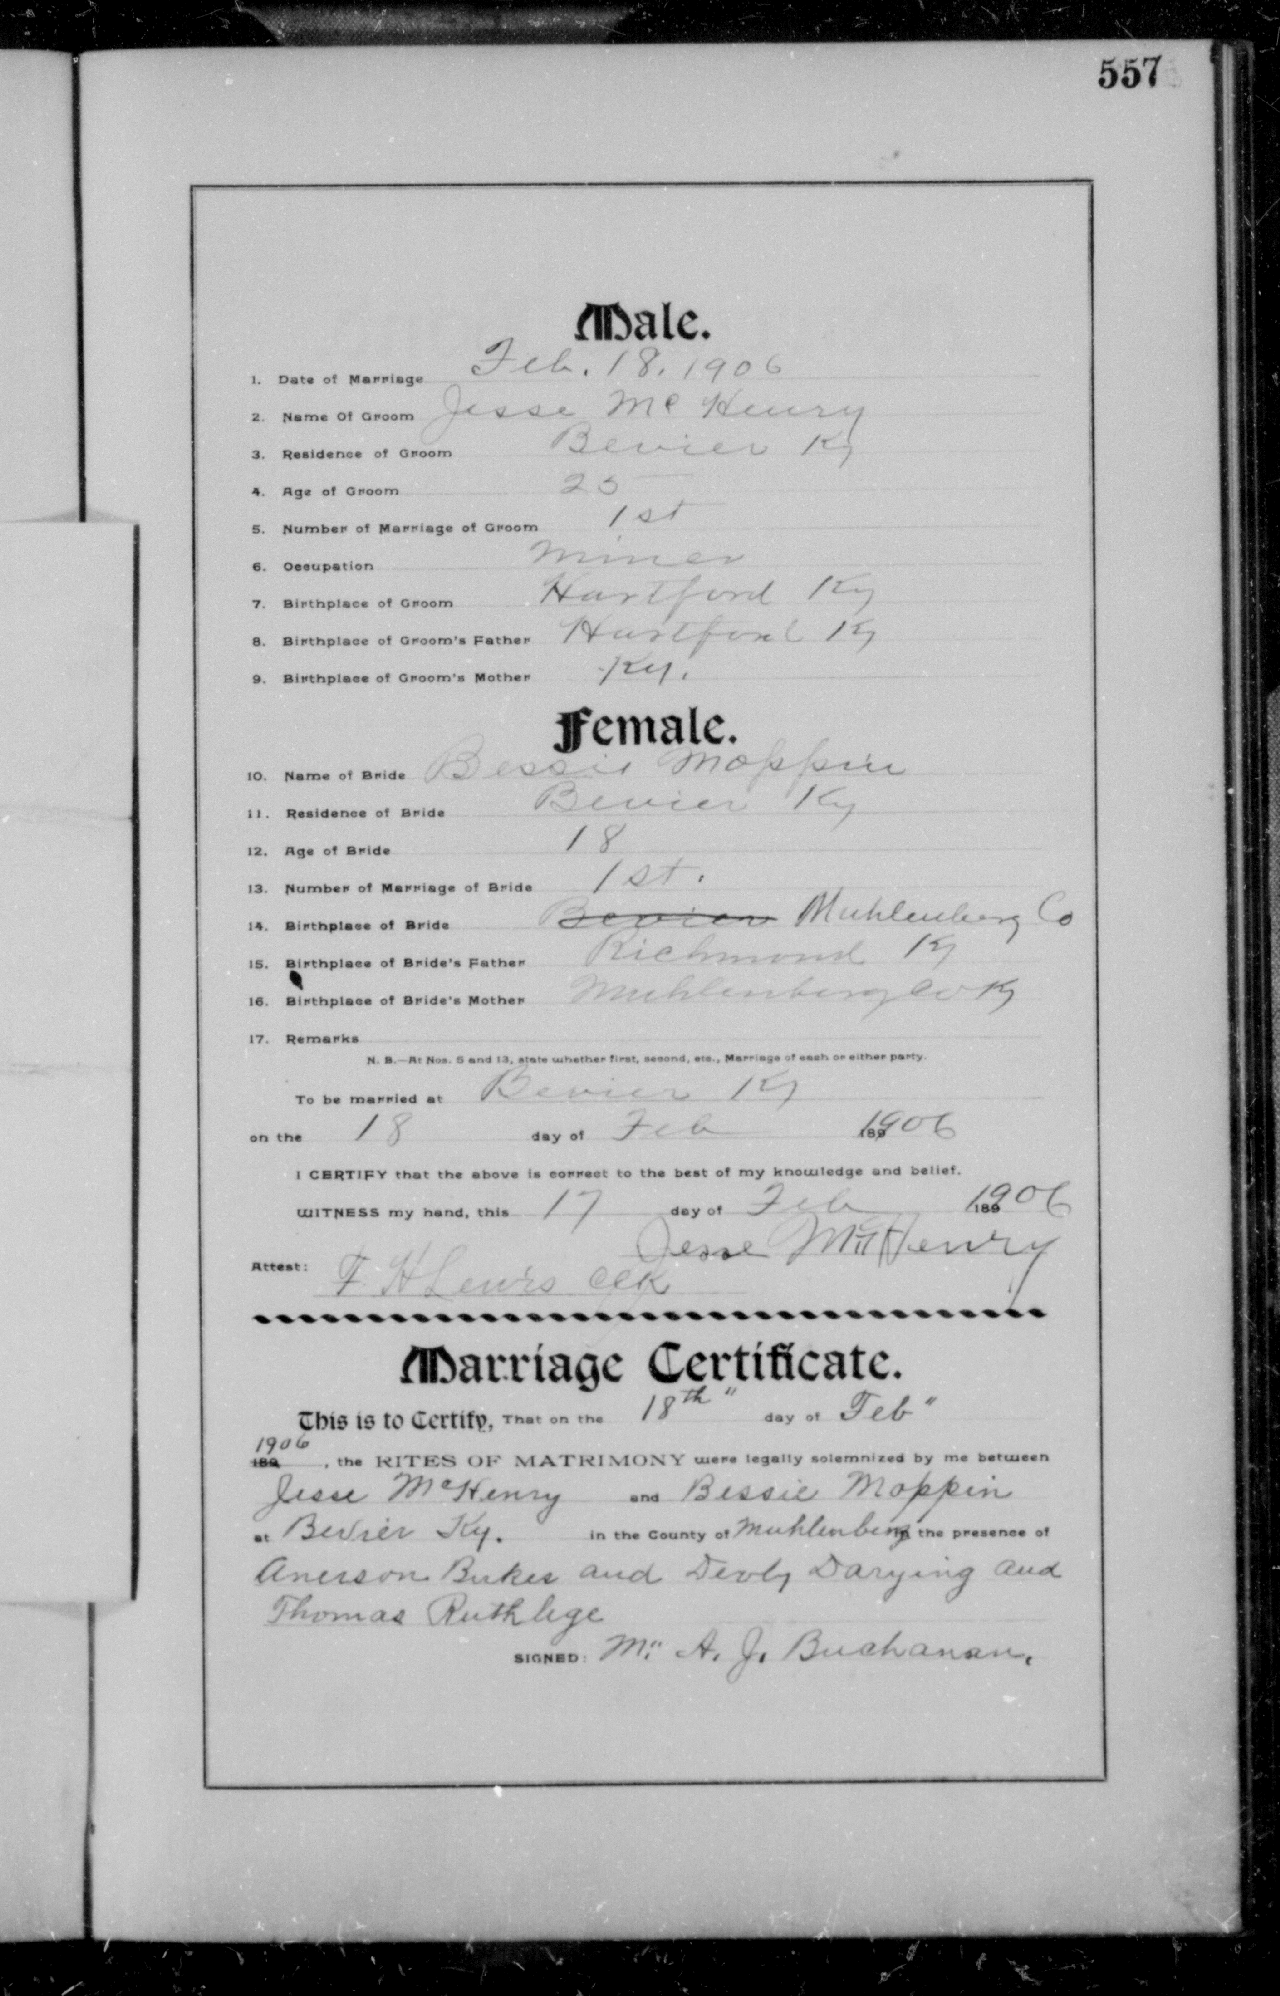 557
Male.
1. Date of Marriage Feb. 18. 1906
2. Name Of Groom Jesse McHenry
3. Residence of Groom Bevier Ky
4. Age of Groom 25
5. Number of Marriage of Groom 1st
6. Occupation Miner
7. Birthplace of Groom Hartford Ky
8. Birthplace of Groom's Father Hartford Ky
9. Birthplace of Groom's Mother Ky.
Female.
10. Name of Bride Bessie Moppin
11. Residence of Bride Bevier Ky
12. Age of Bride 18
13. Number of Marriage of Bride 1st.
14. Birthplace of Bride Bevier Muhlenberg Co
15. Birthplace of Bride's Father Richmond Ky
16. Birthplace of Bride's Mother Muhlenberg Co Ky
17. Remarks
N. B.—At Nos. 5 and 13, state whether first, second, etc., Marriage of each or either party.
To be married at Bevier Ky
on the 18 day of Feb 1906
I CERTIFY that the above is correct to the best of my knowledge and belief.
WITNESS my hand, this 17 day of Feb 1906
Jesse McHenry
Attest: F H Lewis Clk
Marriage Certificate.
This is to Certify, That on the 18th" day of Feb"
1906
189 , the RITES OF MATRIMONY were legally solemnized by me between
Jesse McHenry and Bessie Moppin
at Bevier Ky. in the County of Muhlenberg in the presence of
Anerson and Darying and
Thomas Ruthlege
SIGNED: A. J. Buchanan.